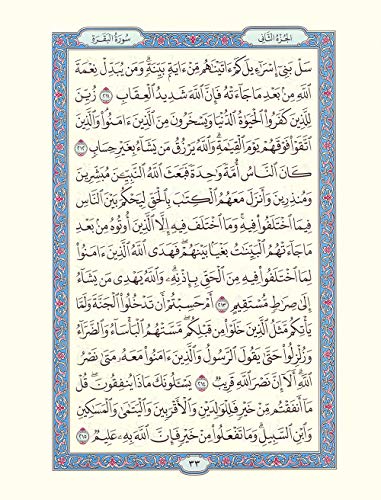 الجزء الثاني
سورة البقرة
سَلْ بَنِي إِسْرَٰٓءِيلَ كَمْ ءَاتَيْنَٰهُم مِّنْ ءَايَةٍۭ بَيِّنَةٍ ۗ وَمَن يُبَدِّلْ نِعْمَةَ
ٱللَّهِ مِنۢ بَعْدِ مَا جَآءَتْهُ فَإِنَّ ٱللَّهَ شَدِيدُ ٱلْعِقَابِ ٢١١ زُيِّنَ
لِلَّذِينَ كَفَرُوا۟ ٱلْحَيَوٰةُ ٱلدُّنْيَا وَيَسْخَرُونَ مِنَ ٱلَّذِينَ ءَامَنُوا۟ ۘ وَٱلَّذِينَ
ٱتَّقَوْا۟ فَوْقَهُمْ يَوْمَ ٱلْقِيَٰمَةِ ۗ وَٱللَّهُ يَرْزُقُ مَن يَشَآءُ بِغَيْرِ حِسَابٍ ٢١٢
كَانَ ٱلنَّاسُ أُمَّةً وَٰحِدَةً فَبَعَثَ ٱللَّهُ ٱلنَّبِيِّۦنَ مُبَشِّرِينَ
وَمُنذِرِينَ وَأَنزَلَ مَعَهُمُ ٱلْكِتَٰبَ بِٱلْحَقِّ لِيَحْكُمَ بَيْنَ ٱلنَّاسِ
فِيمَا ٱخْتَلَفُوا۟ فِيهِ ۚ وَمَا ٱخْتَلَفَ فِيهِ إِلَّا ٱلَّذِينَ أُوتُوهُ مِنۢ بَعْدِ
مَا جَآءَتْهُمُ ٱلْبَيِّنَٰتُ بَغْيًۢا بَيْنَهُمْ ۖ فَهَدَى ٱللَّهُ ٱلَّذِينَ ءَامَنُوا۟
لِمَا ٱخْتَلَفُوا۟ فِيهِ مِنَ ٱلْحَقِّ بِإِذْنِهِۦ ۗ وَٱللَّهُ يَهْدِى مَن يَشَآءُ
إِلَىٰ صِرَٰطٍ مُّسْتَقِيمٍ ٢١٣ أَمْ حَسِبْتُمْ أَن تَدْخُلُوا۟ ٱلْجَنَّةَ وَلَمَّا
يَأْتِكُم مَّثَلُ ٱلَّذِينَ خَلَوْا۟ مِن قَبْلِكُم ۖ مَّسَّتْهُمُ ٱلْبَأْسَآءُ وَٱلضَّرَّآءُ
وَزُلْزِلُوا۟ حَتَّىٰ يَقُولَ ٱلرَّسُولُ وَٱلَّذِينَ ءَامَنُوا۟ مَعَهُۥ مَتَىٰ نَصْرُ
ٱللَّهِ ۗ أَلَآ إِنَّ نَصْرَ ٱللَّهِ قَرِيبٌ ٢١٤ يَسْـَٔلُونَكَ مَاذَا يُنفِقُونَ ۖ قُلْ
مَآ أَنفَقْتُم مِّنْ خَيْرٍ فَلِلْوَٰلِدَيْنِ وَٱلْأَقْرَبِينَ وَٱلْيَتَٰمَىٰ وَٱلْمَسَٰكِينِ
وَٱبْنِ ٱلسَّبِيلِ ۗ وَمَا تَفْعَلُوا۟ مِنْ خَيْرٍ فَإِنَّ ٱللَّهَ بِهِۦ عَلِيمٌ ٢١٥
٣٣